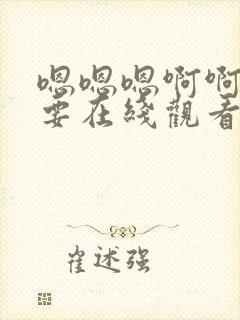 嗯嗯嗯啊啊
要在綫觀看
崔述强